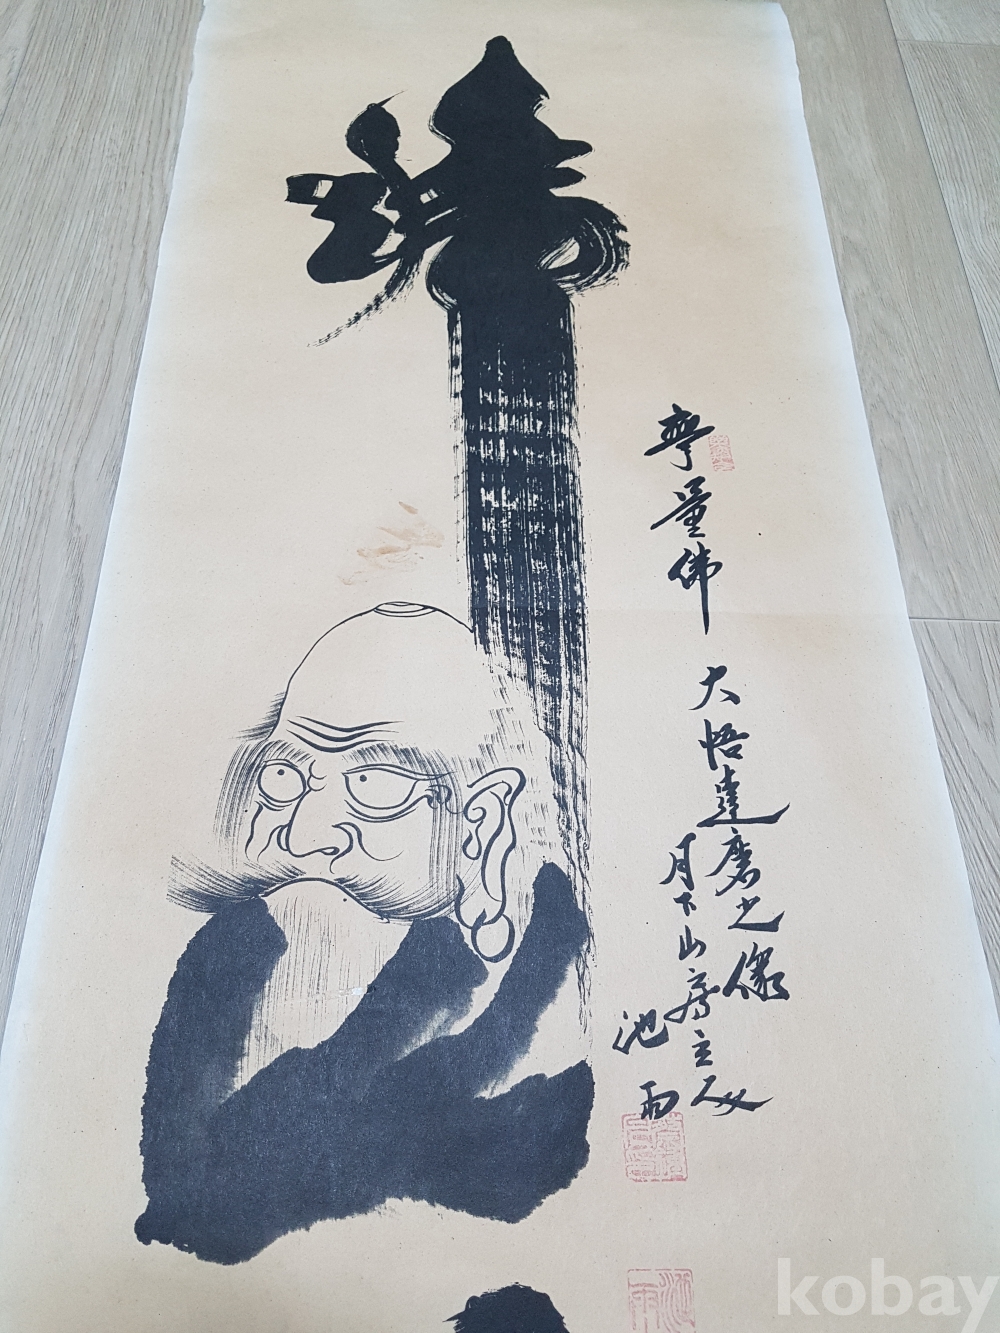 禪
無量佛 大悟達磨之像
月下山房主人
池雨
kobay